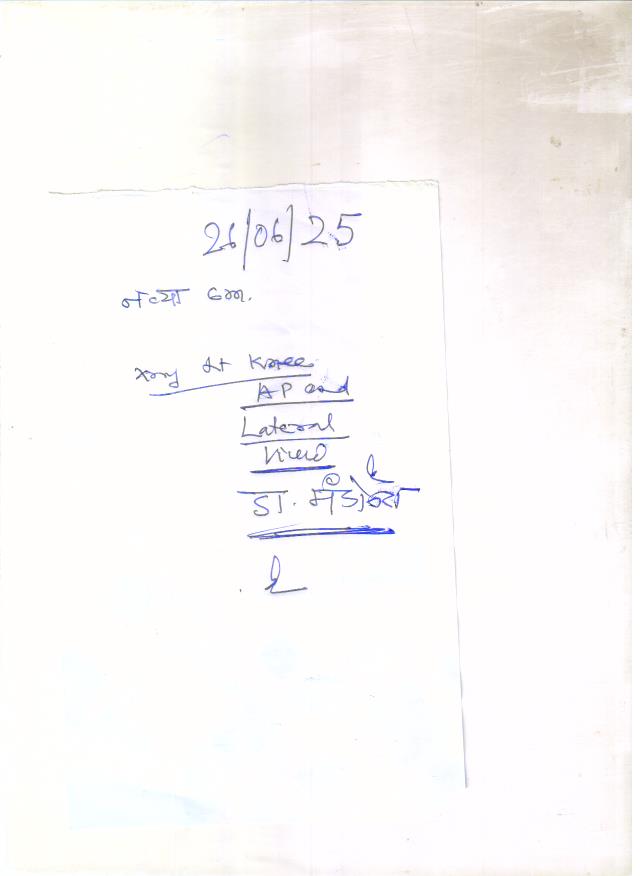 26/06/25
नव्या
Xray Knee
AP and
Lateral
View
डा.